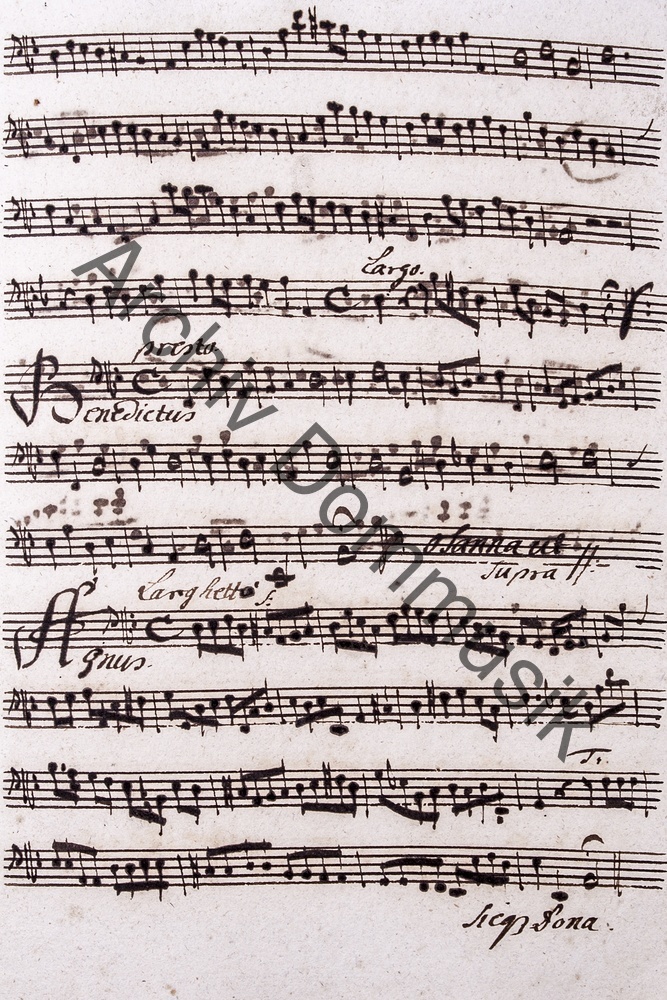 Largo.
presto
Benedictus
Osanna ut
Supra
Larghetto
S:
Agnus.
T:
Dona.
Archiv Dommusik